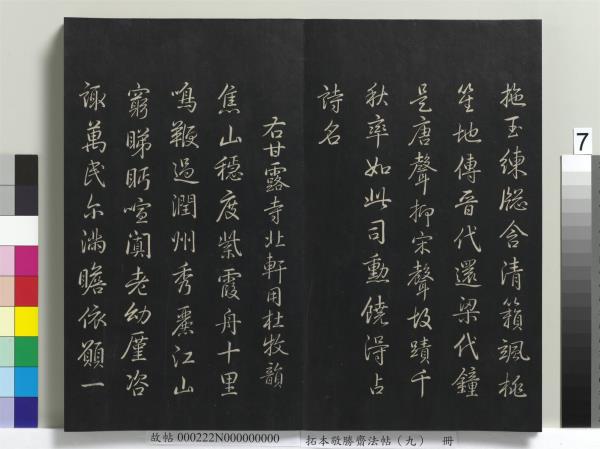 拖玉練牕含清籟颯桃
笙地傳晉代還梁代鐘
是唐聲抑宋聲故蹟千
秋率如此司勳饒得占
詩名
右甘露寺北軒用杜牧韻
焦山穩度紫霞舟十里
鳴鞭過潤州秀麗江山
窮睇眄喧闐老幼廑咨
諏萬民尔滿瞻依願一
7
故帖 000222N000000000
拓本敬勝齋法帖（九） 冊